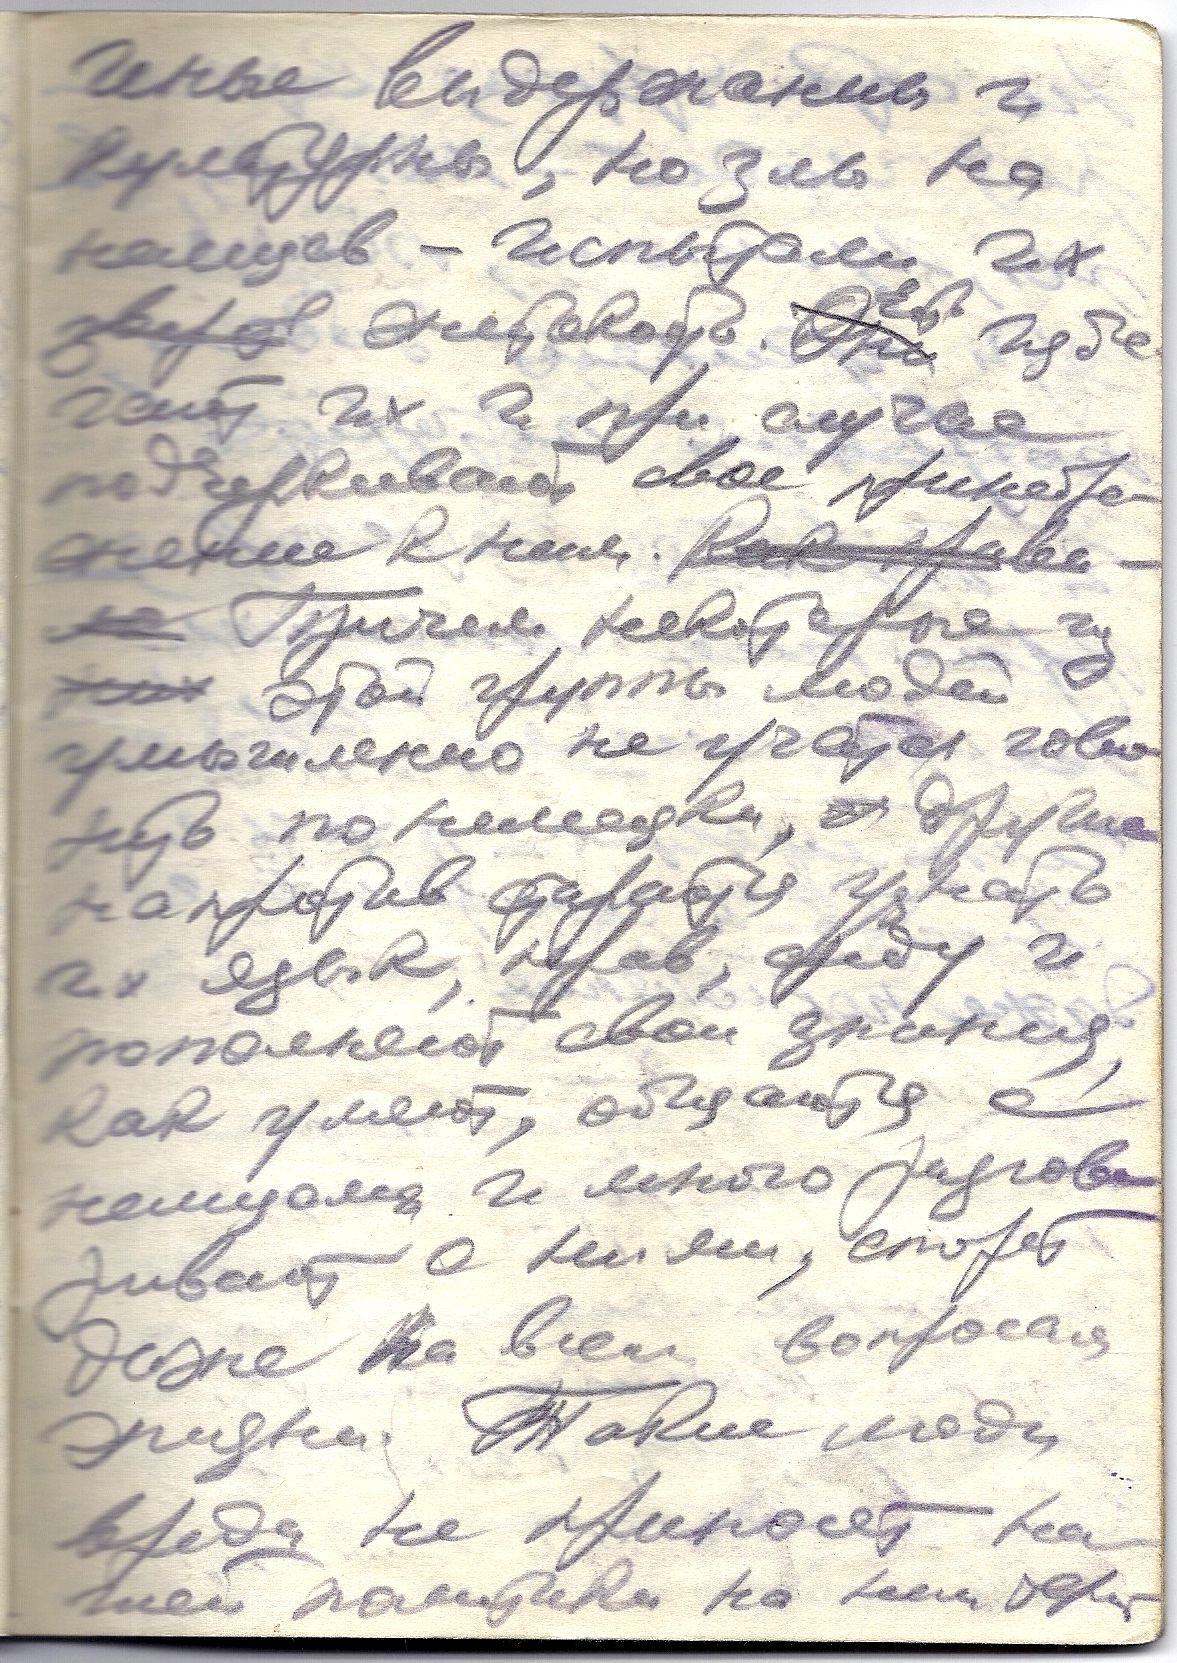 иные выдержанны и
культурны, но злы на
немцев – испытали их
жестокость. Есть избе
гают их и при случае
подчеркивают свое пренебре-
жение к ним. Как прави-
ло Причем некоторые из
них этой группы людей
умышленно не учатся гово
по немецки, а другие
напротив стараются узнать
их язык, нрав, среду и
пополняют свои знания,
как умеют, общаются с
немцами и много разгова
ривают с ними, спорят
даже на всем вопросам
жизни. Такие люди
вреда не приносят на
шей политики но ним